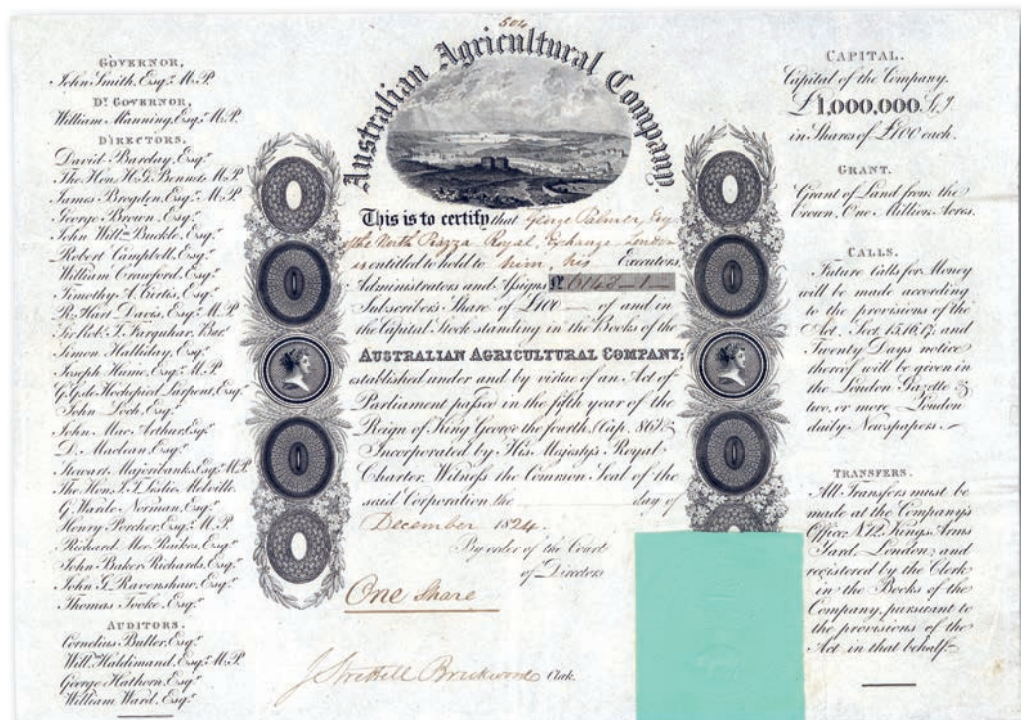 504
Australian Agricultural Company
GOVERNOR,
John Smith, Esqr. M.P.
DY. GOVERNOR,
William Manning, Esqr. M.P.
DIRECTORS,
David Barclay, Esqr.
The Hon. H.G. Bennet, M.P.
James Brogden, Esqr. M.P.
George Brown, Esqr.
John Willm. Buckle, Esqr.
Robert Campbell, Esqr.
William Crawford, Esqr.
Timothy A. Curtis, Esqr.
R. Hart Davis, Esqr. M.P.
Sir Robt. T. Farquhar, Bart.
Simon Halliday, Esqr.
Joseph Hume, Esqr. M.P.
G.G. de Hochepied Larpent, Esqr.
John Loch, Esqr.
John Mac Arthur, Esqr.
D. Maclean, Esqr.
Stewart Majoribanks, Esqr. M.P.
The Hon. J.T. Leslie Melville.
G. Warde Norman, Esqr.
Henry Porcher, Esqr. M.P.
Richard Mee Raikes, Esqr.
John Baker Richards, Esqr.
John G. Ravenshaw, Esqr.
Thomas Tooke, Esqr.
AUDITORS.
Cornelius Buller, Esqr.
Will. Haldimand, Esqr. M.P.
George Hathorn, Esqr.
William Ward, Esqr.
This is to certify that George Palmer, Esq
of the North Piazza Royal Exchange London
is entitled to hold to him, his Executors,
Administrators and Assigns No. 6148 — 1 —
Subscriber's Share of £100 — of and in
the Capital Stock standing in the Books of the
AUSTRALIAN AGRICULTURAL COMPANY;
established under and by virtue of an Act of
Parliament passed in the fifth year of the
Reign of King George the fourth, (Cap. 86) &
Incorporated by His Majesty's Royal
Charter. Witness the Common Seal of the
said Corporation the day of
December 1824.
By order of the Court
of Directors
One Share
J Strettell Brickwood Clerk.
CAPITAL.
Capital of the Company.
£1,000,000
in Shares of £100 each.
GRANT.
Grant of Land from the
Crown, One Million Acres.
CALLS.
Future Calls for Money
will be made according
to the provisions of the
Act. Sect. 15, 16, 17; and
Twenty Days notice
thereof will be given in
the London Gazette &
two, or more London
daily Newspapers.
TRANSFERS.
All Transfers must be
made at the Company's
Office; No. 12, Kings Arms
Yard, London; and
registered by the Clerk
in the Books of the
Company, pursuant to
the provisions of the
Act in that behalf.